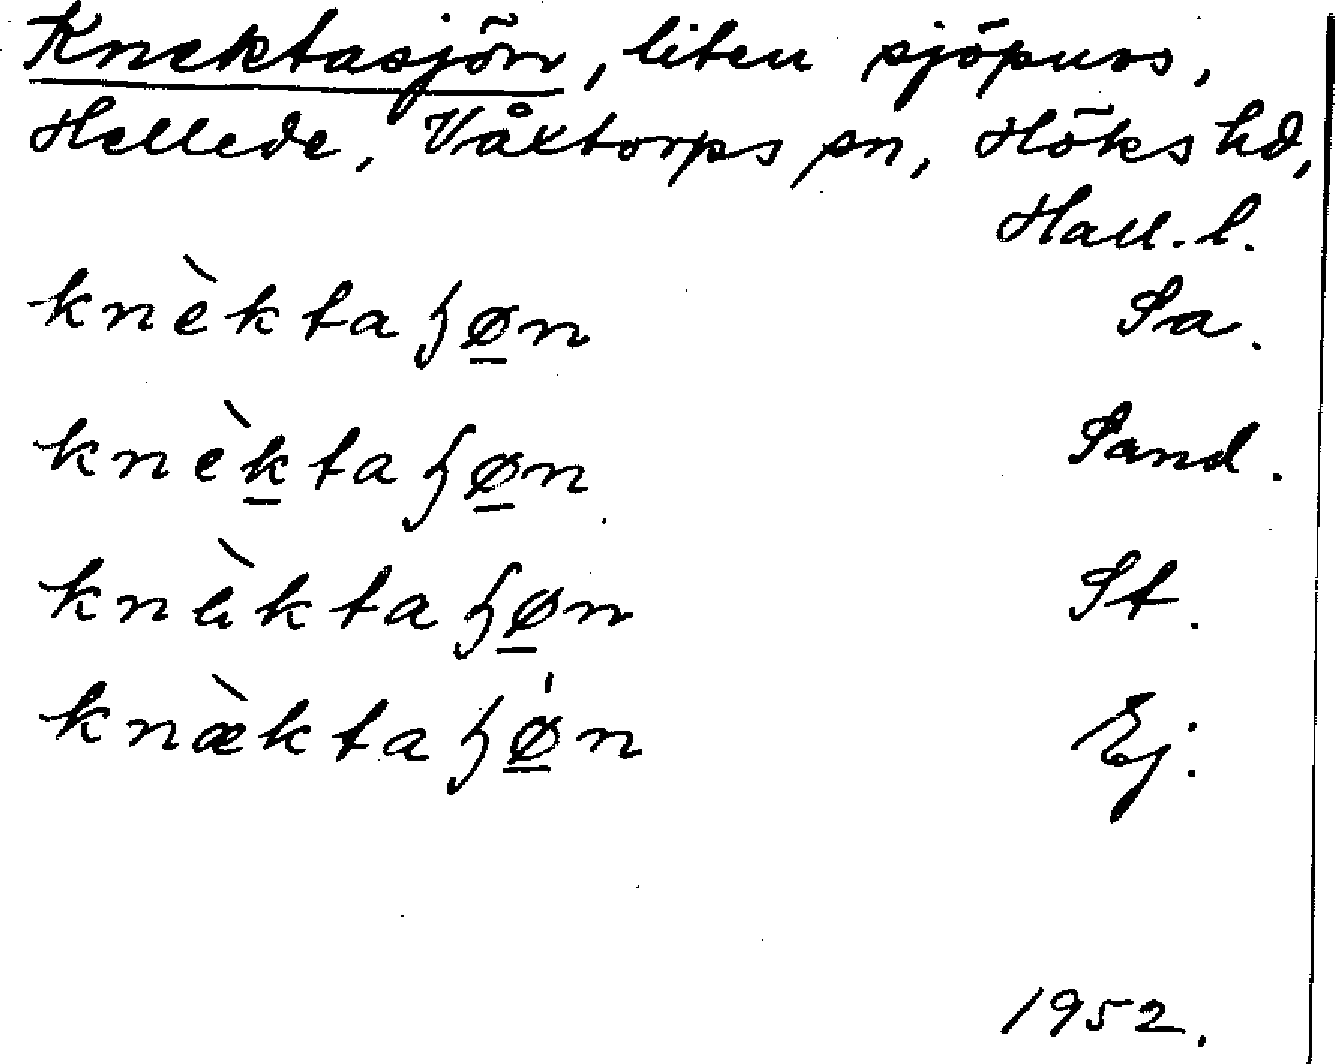 Knektasjön, liten sjöpuss,
Hellede, Våxtorps sn, Höks hd,
Hall. l.
knèktaɧø̠n Sa.
knèk̠taɧø̠n Sand.
knàktaɧø̠n St.
knæ̀ktaɧǿ̠n Ej.
1952.